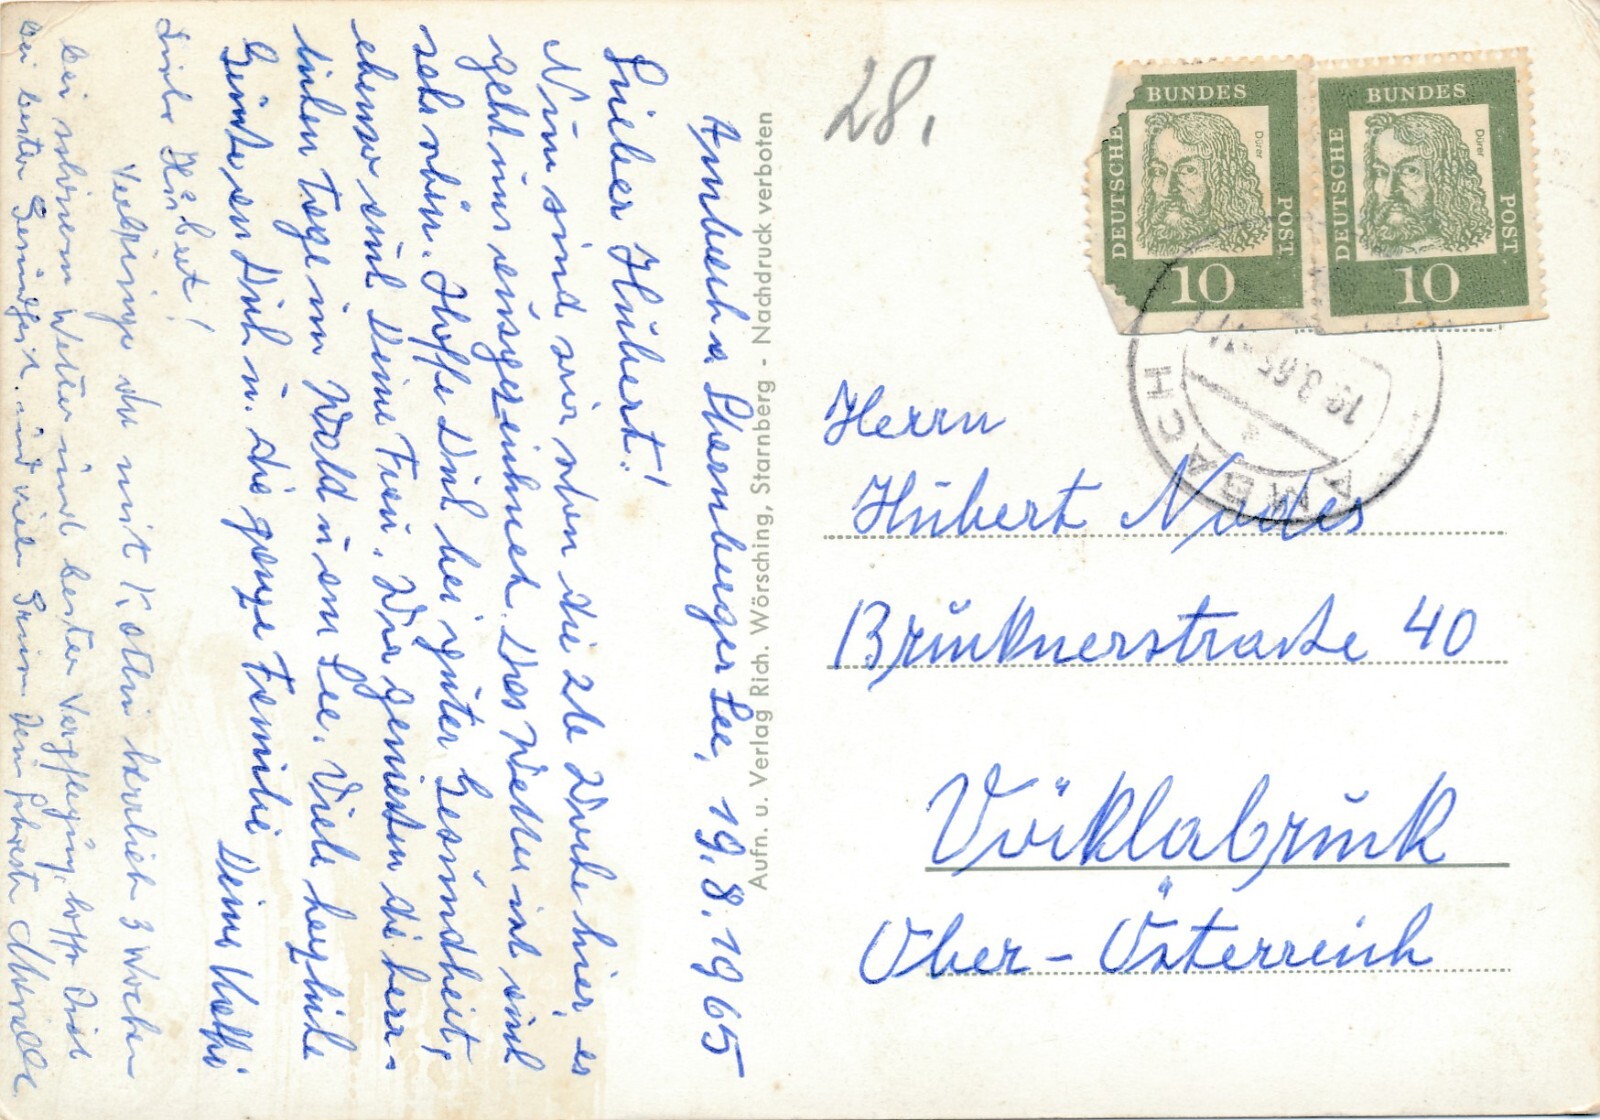 Ambach a. Starnberger See, 19.8.1965
Lieber Hubert!
Nun sind wir schon die 2te Woche hier, es
geht uns ausgezeichnet. Das Wetter ist auch
sehr schön. Hoffe Dich bei guter Gesundheit,
ebenso auch Deine Frau. Wir genießen die herr-
lichen Tage im Wald u. am See. Viele herzliche
Grüße an Dich u. die ganze Familie Deine Kathi
Lieber Hubert!
Verbringe da mit Katlin herrlich 3 Wochen
bei schönem Wetter und bester Verpflegung, hoffe Dich
bei bester Gesundheit. und viele
Aufn. u. Verlag Rich. Wörsching, Starnberg - Nachdruck verboten
28.
DEUTSCHE BUNDES POST
Dürer
10
DEUTSCHE BUNDES POST
Dürer
10
AMBACH
Herrn
Hubert
Brucknerstrasse 40
Vöcklabruck
Ober-Österreich